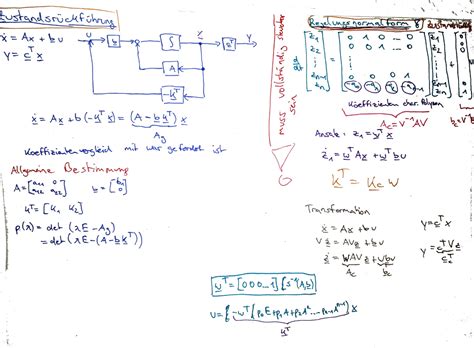 Zustandsrückführung
ẋ = Ax + bu
y = cᵀx
u
b
∫
x
cᵀ
y
A
-kᵀ
ẋ = Ax + b(-kᵀx) = (A - bkᵀ) x
Ag
Koeffizientenvergleich mit was gefordert ist
Allgemeine Bestimmung
A = [a11 0
a12 a22]
b = [b1
0]
kᵀ = [k1 k2]
p(λ) = det (λE - Ag)
= det (λE - (A - bkᵀ))
muss vollständig steuerbar sein
Regelungsnormalform
Zustandsreg
ż1
ż2
żn-1
żn
0 1 0 0
z1
z2
zn
Koeffizienten char. Polynom
Ac = V⁻¹AV
Ansatz: z1 = wᵀx
ż1 = wᵀAx + wᵀbu
kᵀ = Kc W
Transformation
ẋ = Ax + bu
Vż = AVz + bu
ż = WAVz + Wbu
Ac
bc
y = cᵀx
y = cᵀVz
cᵀc
wᵀ = [0 0 0 ... 1] [S⁻¹(A,b)]
u = [-wᵀ[p0E + p1A + p2A² ... pn-1Aⁿ⁻¹] x
kᵀ